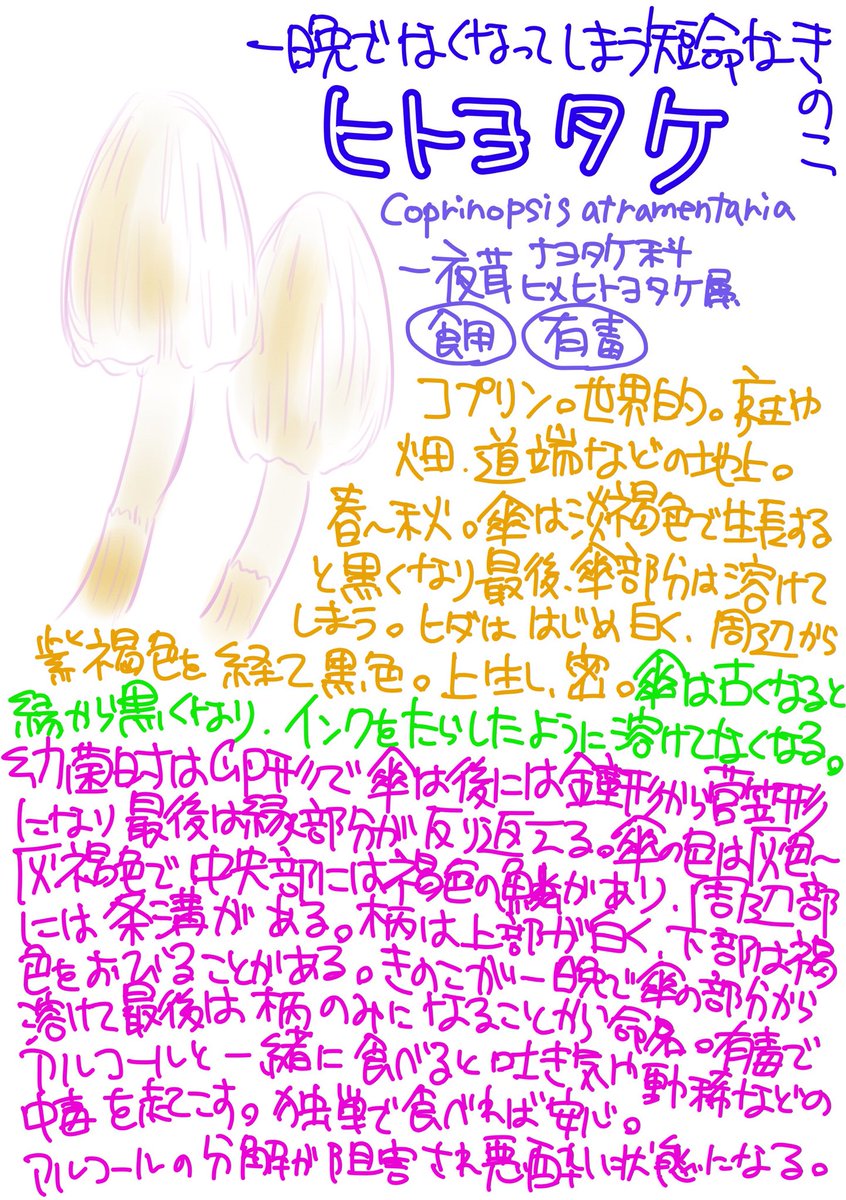 一晩でなくなってしまう短命なきのこ
ヒトヨタケ
Coprinopsis atramentaria
一夜茸 ナヨタケ科
ヒメヒトヨタケ属
食用 有毒
コプリン。世界的。庭や
畑、道端などの地上。
春〜秋。傘は淡褐色で生長する
と黒くなり最後、傘部分は溶けて
しまう。ヒダははじめ白く、周辺から
紫褐色を経て黒色。上生し、密。傘は古くなると
縁から黒くなり、インクをたらしたように溶けてなくなる。
幼菌時は卵形で傘は後には鐘形から菅笠形
になり最後は縁部分が反り返える。傘の色は灰色〜
灰褐色で中央部には褐色の鱗があり、周辺部
には条溝がある。柄は上部が白く、下部は褐
色をおびることがある。きのこが一晩で傘の部分から
溶けて最後は柄のみになることから命名。有毒で
アルコールと一緒に食べると吐き気や動稀などの
中毒を起こす。独単で食べれば安心。
アルコールの分解が阻害され悪酔い状態になる。